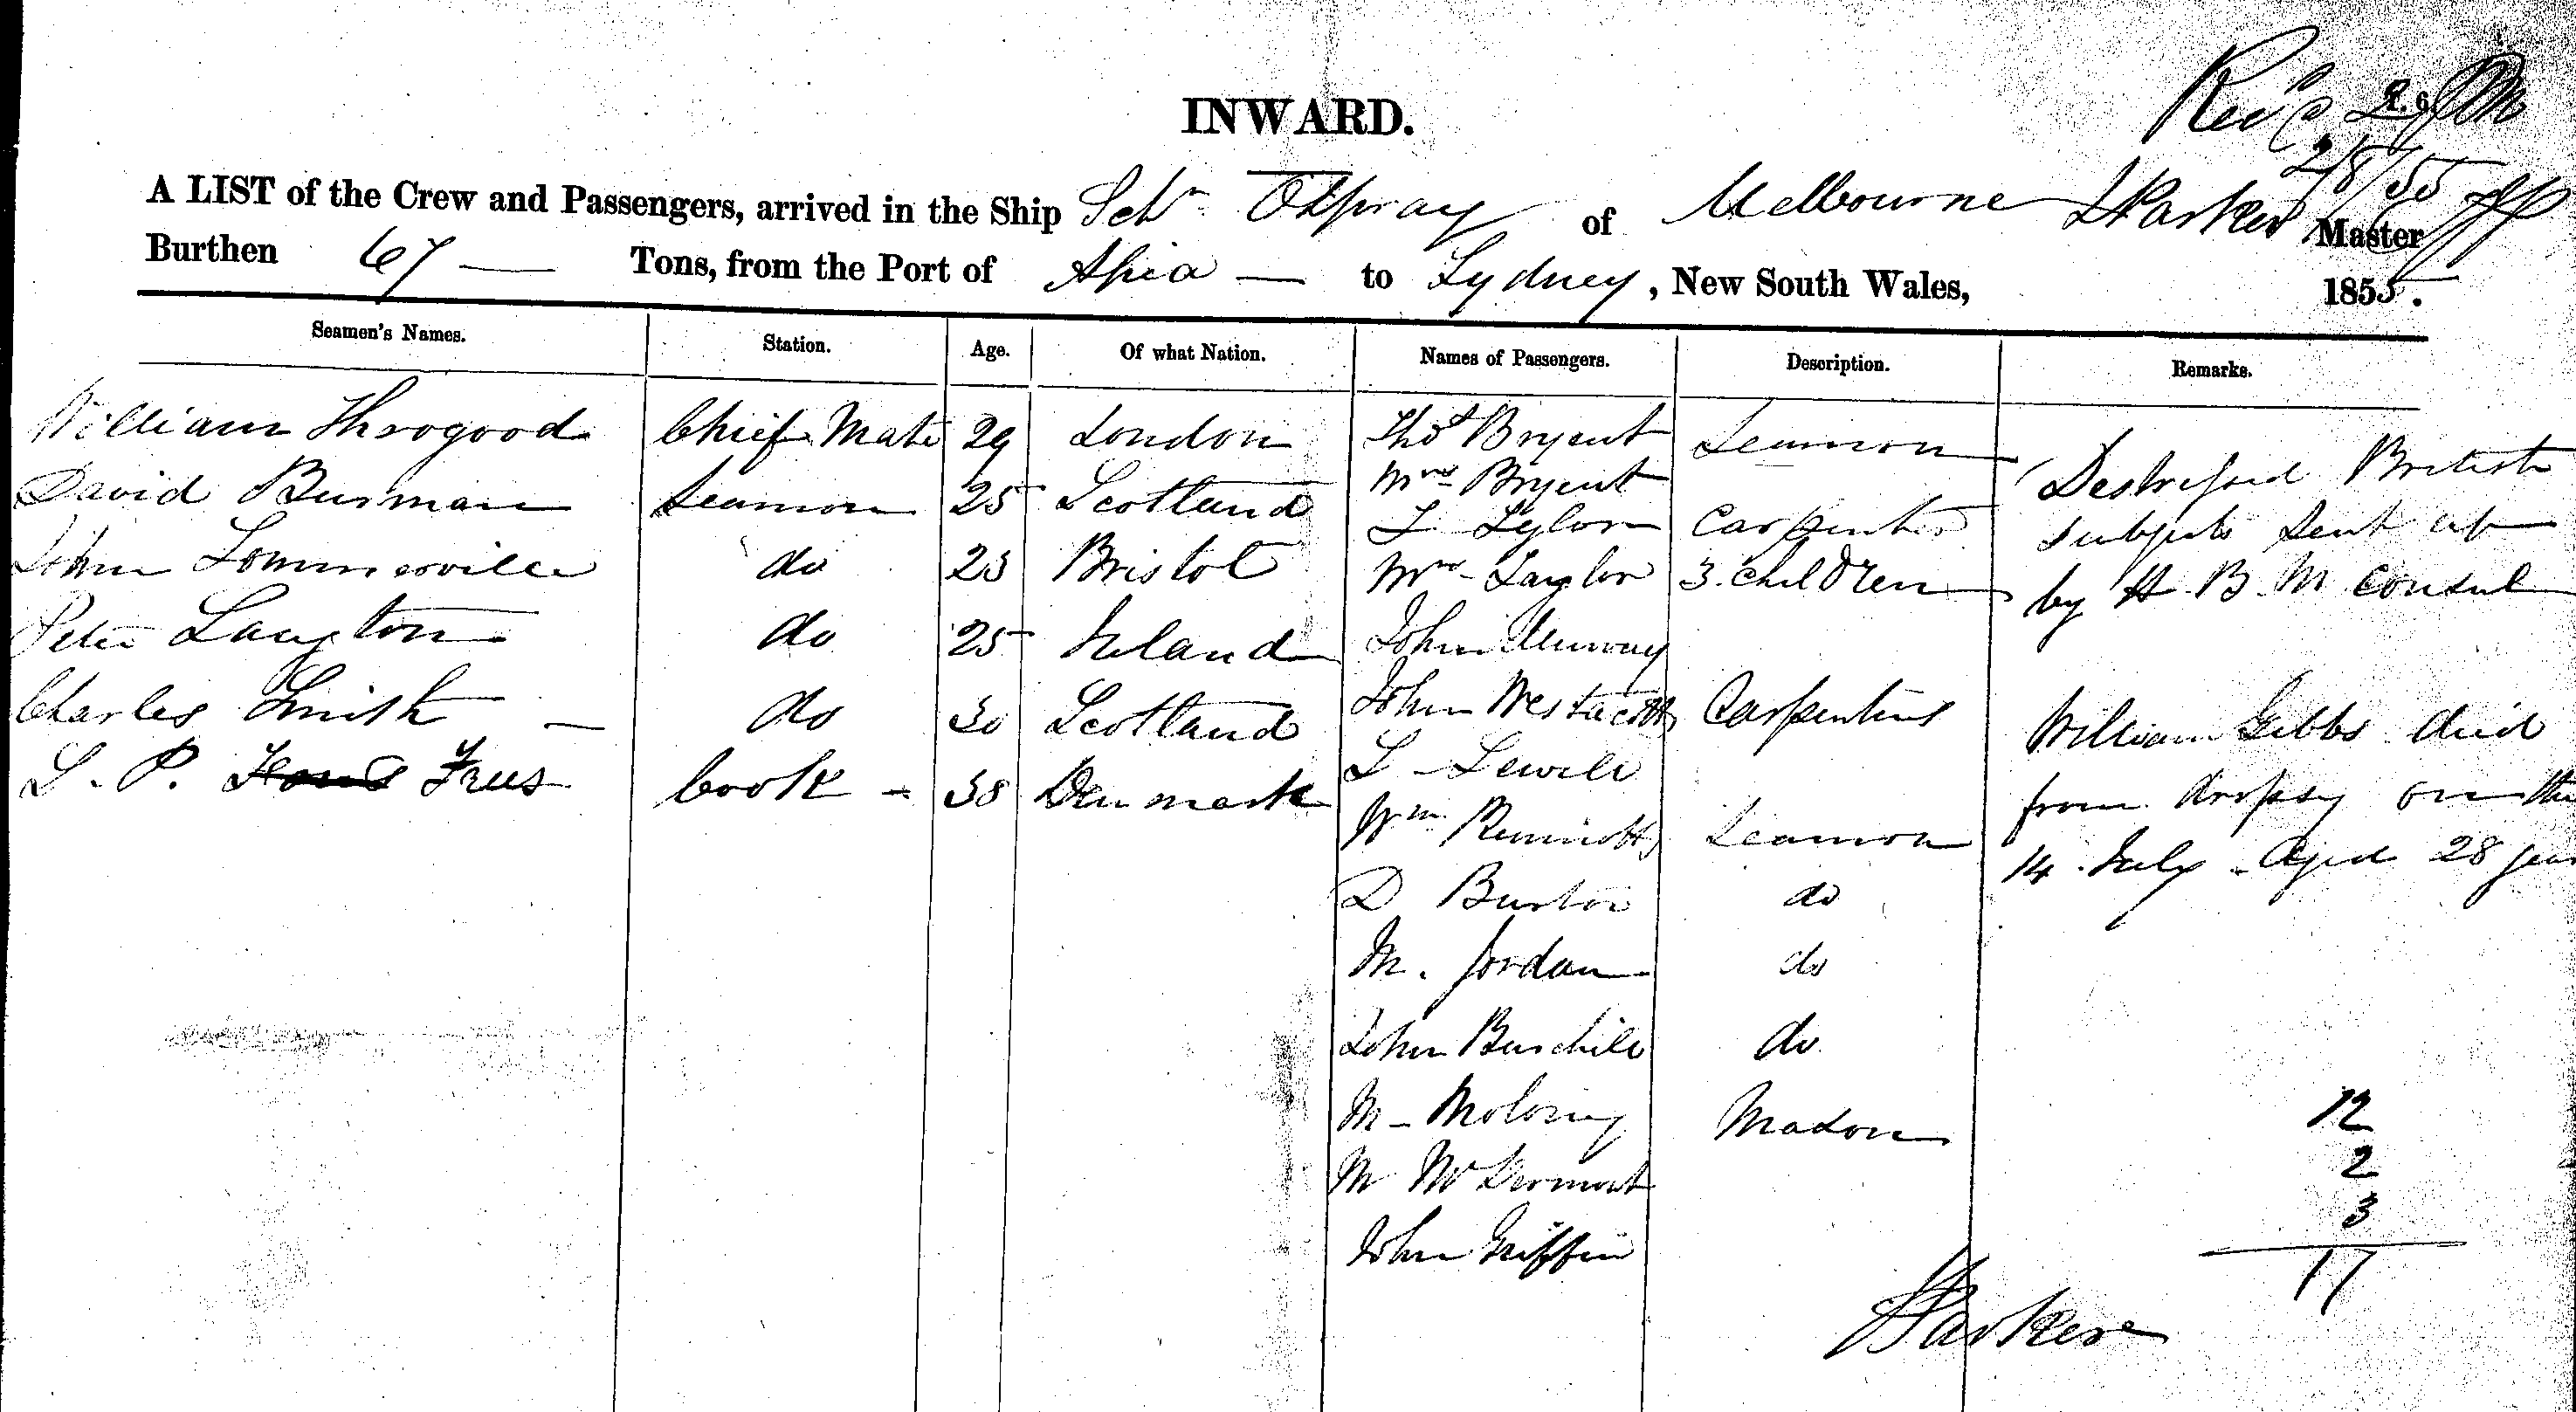 INWARD.
Rec'd
2/8/55
A LIST of the Crew and Passengers, arrived in the Ship Schr Ospray of Melbourne Parker Master
Burthen 67 Tons, from the Port of Apia to Sydney, New South Wales, 1855.
Seamen's Names. Station. Age. Of what Nation. Names of Passengers. Description. Remarks.
William Throgood Chief Mate 29 London Thos Bryent Seamon Distressed British
Mrs Bryent
David Burman Seamon 25 Scotland Carpenter subjects sent up
John Sommerville do 23 Bristol Mrs Taylor 3 children by H B M Consul
Peter Langton do 25 Ireland John Murray
Charles Smith do 30 Scotland John Westacott Carpenters William Gibbs died
L. P. Frees Cook 38 Denmark from dropsy on the
Wm Seamon 14 July Aged 28 years
D Burton do
M. Jordan do
John Burchill do
M Molony Mason 12
M McDermont 2
3
John Griffin 17
Parker